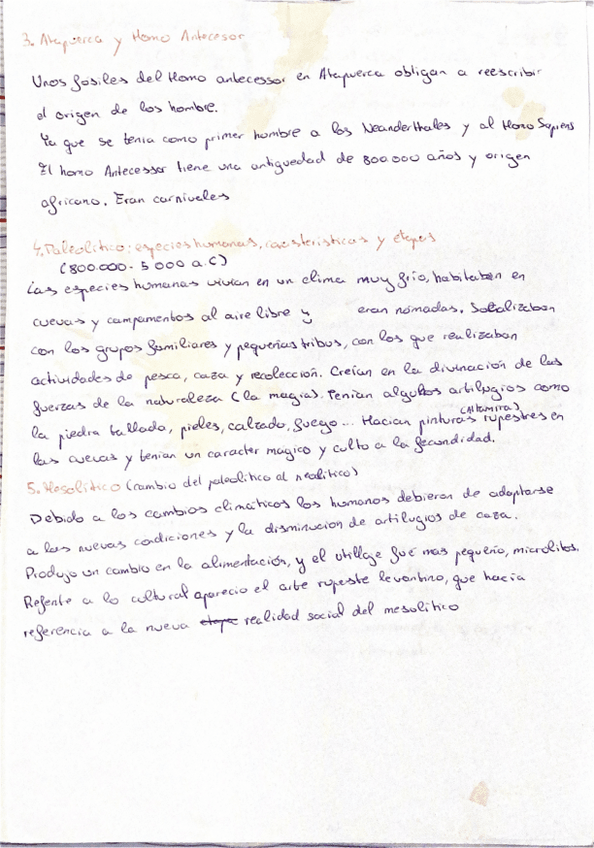 3. Atapuerca y Homo Antecesor
Unos fósiles del Homo antecessor en Atapuerca obligan a reescribir
el origen de los hombre.
Ya que se tenía como primer hombre a los Neanderthales y al Homo Sapiens
El homo Antecessor tiene una antiguedad de 800.000 años y origen
africano. Eran carnivales
4. Paleolitico: especies humanas, caracteristicas y etapas
(800.000 - 5.000 a.C)
Las especies humanas vivian en un clima muy frio, habitaban en
cuevas y campamentos al aire libre y eran nómadas. Socializaban
con los grupos familiares y pequeñas tribus, con los que realizaban
actividades de pesca, caza y recolección. Creían en la divinación de las
fuerzas de la naturaleza (la magia). Tenían algunos artilugios como
la piedra tallada, pieles, calzado, fuego... Hacían pinturas rupestres (Altamira) en
las cuevas y tenian un caracter magico y culto a la fecundidad.
5. Mesolitico (cambio del paleolitico al neolitico)
Debido a los cambios climáticos los humanos debieron de adaptarse
a las nuevas condiciones y la disminucion de artilugios de caza.
Produjo un cambio en la alimentación, y el utillaje fue mas pequeño, microlitos.
Refente a lo cultural aparecio el arte rupeste levantino, que hacía
referencia a la nueva etapa realidad social del mesolitico